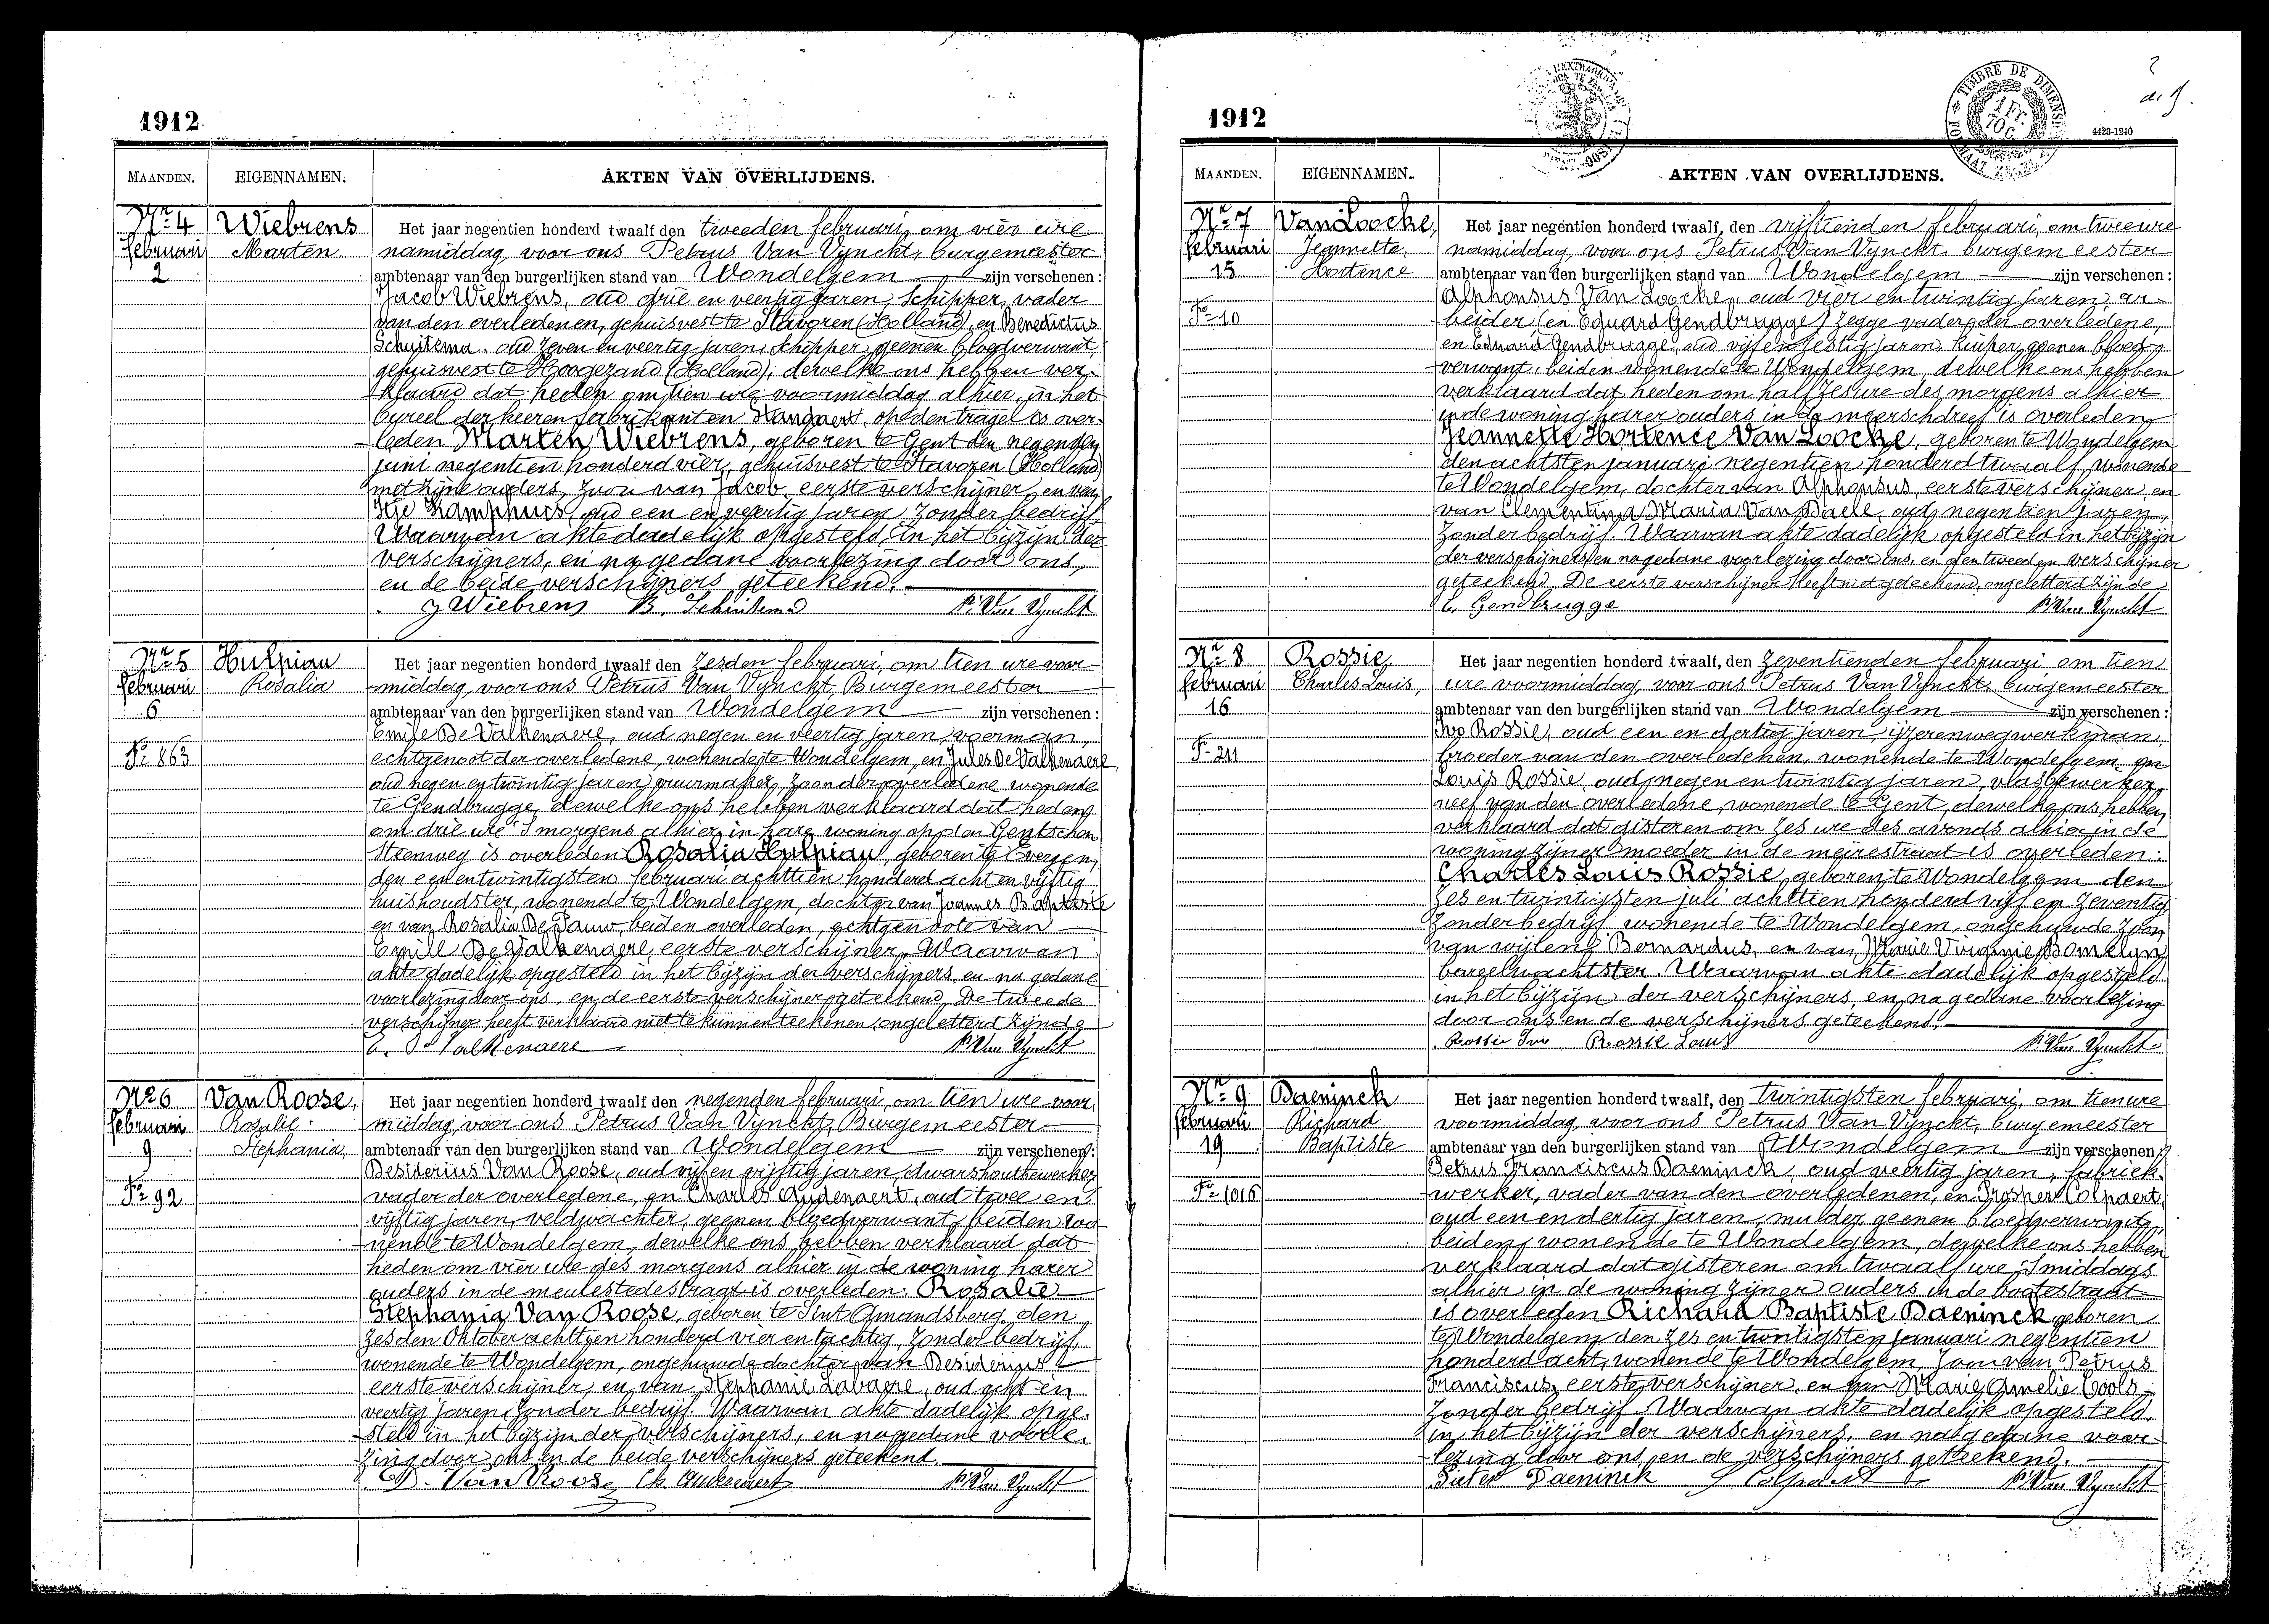 1912
MAANDEN.
EIGENNAMEN.
AKTEN VAN OVERLIJDENS.
Nr 4
februari
2
Wiebrens
Marten.
Het jaar negentien honderd twaalf den tweeden februari, om vier ure
namiddag, voor ons Petrus Van Vynckt, burgemeester
ambtenaar van den burgerlijken stand van Wondelgem zijn verschenen :
Jacob Wiebrens, oud drie en veertig jaren, schipper, vader
van den overledenen, gehuisvest te Stavoren (Holland), en Benedictus
Schuitema, oud zeven en veertig jaren, schipper, geenen bloedverwant,
gehuisvest te Hoogezand (Holland), dewelke ons hebben ver-
klaard dat heden om tien ure voormiddag alhier, in het
bureel der heeren fabrikanten, op den tragel is over-
leden Marten Wiebrens, geboren te Gent den negenden
juni negentien honderd vier, gehuisvest te Stavoren (Holland)
met zijne ouders, zoon van Jacob, eerste verschijner, en van
Itje Kamphuis, oud een en veertig jaren, zonder bedrijf.
Waarvan akte dadelijk opgesteld in het bijzijn der
verschijners, en na gedane voorlezing door ons,
en de beide verschijners geteekend.
J Wiebrens B. Schuitema P. Van Vynckt
Nr 5
februari
6
Fo 863
Hulpiau
Rosalia
Het jaar negentien honderd twaalf den zesden februari, om tien ure voor-
middag, voor ons Petrus Van Vynckt, Burgemeester
ambtenaar van den burgerlijken stand van Wondelgem zijn verschenen :
Emile De Valkenaere, oud negen en veertig jaren, voerman,
echtgenoot der overledene, wonende te Wondelgem, en Jules De Valkenaere,
oud negen en twintig jaren, vuurmaker, zoon der overledene, wonende
te Gendbrugge, dewelke ons hebben verklaard dat heden
om drie ure 's morgens alhier, in hare woning op den Gentschen
steenweg is overleden Rosalia Hulpiau, geboren te Evergem,
den een en twintigsten februari achttien honderd acht en vijftig,
huishoudster, wonende te Wondelgem, dochter van Joannes Baptiste
en van Rosalia De Pauw, beiden overleden, echtgenoote van
Emile De Valkenaere, eerste verschijner. Waarvan
akte dadelijk opgesteld in het bijzijn der verschijners, en na gedane
voorlezing door ons, en de eerste verschijner geteekend. De tweede
verschijner heeft verklaard niet te kunnen teekenen, ongeletterd zijnde
E. De Valkenaere P. Van Vynckt
Nr 6
februari
9
Fo 92
Van Roose,
Rosalie
Stephania,
Het jaar negentien honderd twaalf den negenden februari, om tien ure voor
middag, voor ons Petrus Van Vynckt, Burgemeester
ambtenaar van den burgerlijken stand van Wondelgem zijn verschenen :
Desiderius Van Roose, oud vijf en vijftig jaren, dwarshoutbewerker
vader der overledene, en Charles Audenaert, oud twee en
vijftig jaren, veldwachter, geenen bloedverwant, beiden wo-
nende te Wondelgem, dewelke ons hebben verklaard dat
heden om vier ure des morgens alhier in de woning harer
ouders in de meulestedestraat is overleden: Rosalie
Stephania Van Roose, geboren te Sint Amandsberg, den
zesden Oktober achttien honderd vier en tachtig, zonder bedrijf,
wonende te Wondelgem, ongehuwde dochter van Desiderius
eerste verschijner, en van Stephanie Labaere, oud acht en
veertig jaren, zonder bedrijf. Waarvan akte dadelijk opge-
steld in het bijzijn der verschijners, en na gedane voorle-
zing door ons, en de beide verschijners geteekend.
D. Van Roose Ch. Audenaert P. Van Vynckt
1912
TIMBRE DE DIMENSION
1 Fr.
70 C.
4423-1240
MAANDEN.
EIGENNAMEN.
AKTEN VAN OVERLIJDENS.
Nr 7
februari
15
Fo 10
Van Loocke,
Jeannette
Hortence
Het jaar negentien honderd twaalf, den vijftienden februari, om twee ure
namiddag, voor ons Petrus Van Vynckt, burgemeester
ambtenaar van den burgerlijken stand van Wondelgem zijn verschenen :
Alphonsus Van Loocke, oud vier en twintig jaren, ar-
beider (en Eduard Gendbrugge) zegge vader der overledene,
en Eduard Gendbrugge, oud vijf en zestig jaren, kuiper, geenen bloed-
verwant, beiden wonende te Wondelgem, dewelke ons hebben
verklaard dat heden om half zes ure des morgens alhier
in de woning harer ouders in de meerschdreef is overleden
Jeannette Hortence Van Loocke, geboren te Wondelgem
den achtsten januari negentien honderd twaalf, wonende
te Wondelgem, dochter van Alphonsus, eerste verschijner, en
van Clementina Maria Van Daele, oud negentien jaren,
zonder bedrijf. Waarvan akte dadelijk opgesteld in het bijzijn
der verschijners en na gedane voorlezing door ons, en den tweeden verschijner
geteekend. De eerste verschijner heeft niet geteekend, ongeletterd zijnde
E. Gendbrugge P. Van Vynckt
Nr 8
februari
16
Fo 211
Rossie
Charles Louis,
Het jaar negentien honderd twaalf, den zeventienden februari om tien
ure voormiddag, voor ons Petrus Van Vynckt, burgemeester
ambtenaar van den burgerlijken stand van Wondelgem zijn verschenen :
Ivo Rossie, oud een en dertig jaren, ijzerenwegwerkman,
broeder van den overledenen, wonende te Wondelgem, en
Louis Rossie, oud negen en twintig jaren, vlasbewerker,
neef van den overledene, wonende te Gent, dewelke ons hebben
verklaard dat gisteren om zes ure des avonds alhier in de
woning zijner moeder in de meirestraat is overleden:
Charles Louis Rossie, geboren te Wondelgem den
zes en twintigsten juli achttien honderd vijf en zeventig
zonder bedrijf, wonende te Wondelgem, ongehuwde zoon
van wijlen Bernardus, en van Marie Virginie Bomelyn
bareelwachtster. Waarvan akte dadelijk opgesteld
in het bijzijn der verschijners, en na gedane voorlezing
door ons en de verschijners geteekend.
Rossie Ivo Rossie Louis P. Van Vynckt
Nr 9
februari
19
Fo 1016
Daeninck
Richard
Baptiste
Het jaar negentien honderd twaalf, den twintigsten februari, om tien ure
voormiddag, voor ons Petrus Van Vynckt, burgemeester
ambtenaar van den burgerlijken stand van Wondelgem zijn verschenen :
Petrus Franciscus Daeninck, oud veertig jaren, fabriek-
werker, vader van den overledenen, en Prosper Colpaert,
oud een en dertig jaren, mulder, geenen bloedverwant,
beiden wonende te Wondelgem, dewelke ons hebben
verklaard dat gisteren om twaalf ure 's middags
alhier in de woning zijner ouders in de botestraat
is overleden Richard Baptiste Daeninck, geboren
te Wondelgem den zes en twintigsten januari negentien
honderd acht, wonende te Wondelgem, zoon van Petrus
Franciscus, eerste verschijner, en van Marie Amelie Cools
zonder bedrijf. Waarvan akte dadelijk opgesteld,
in het bijzijn der verschijners, en na gedane voor-
lezing door ons, en de verschijners geteekend.
Pieter Daeninck Colpaert P. Van Vynckt